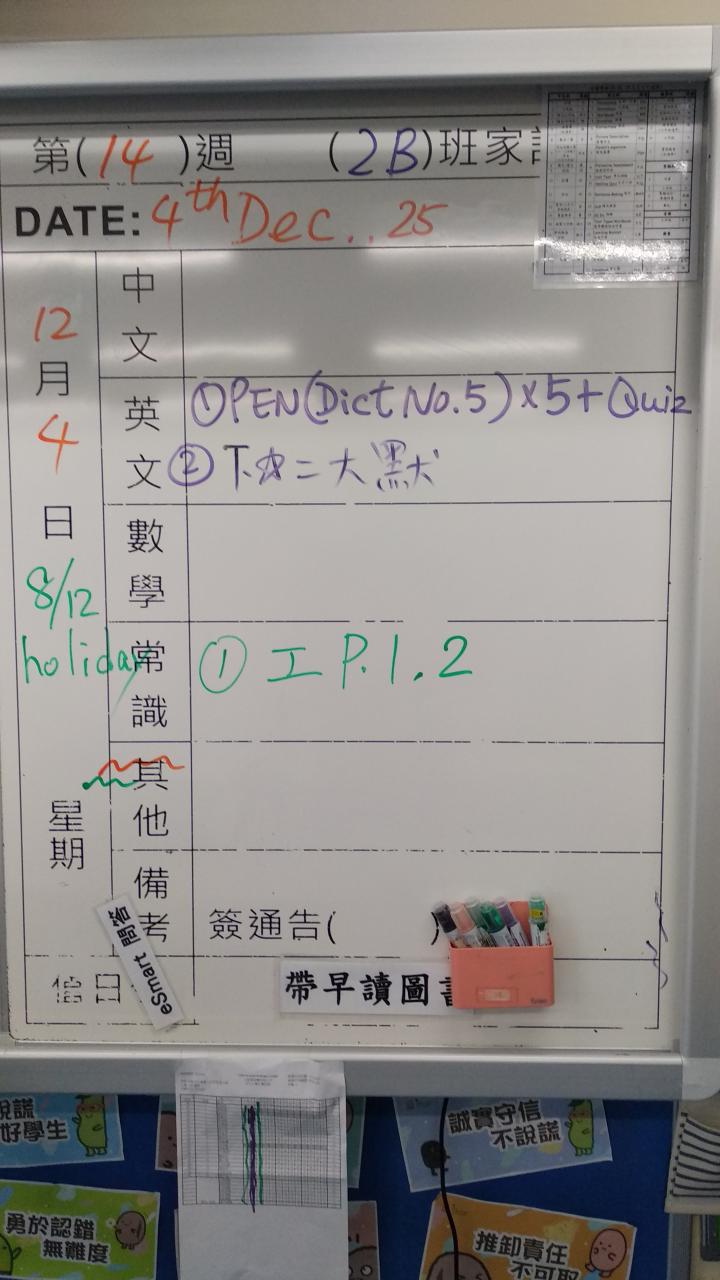 第(14)週 (2B)班家
DATE: 4th Dec..25
12月4日
8/12
holiday
星期
中文
英文
①PEN(Dict No.5)×5+Quiz
②下次二大默
數學
常識
① 工 P.1.2
其他
備考
簽通告( )
值日
eSmart 問答
帶早讀圖
說謊
好學生
誠實守信
不說謊
勇於認錯
無難度
推卸責任
不可取